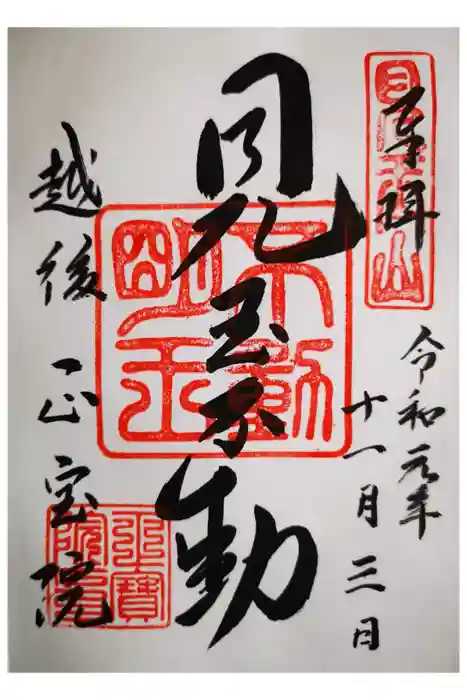 奉拝
令和元年
十一月三日
見玉不動
不動
明王
越後正宝院